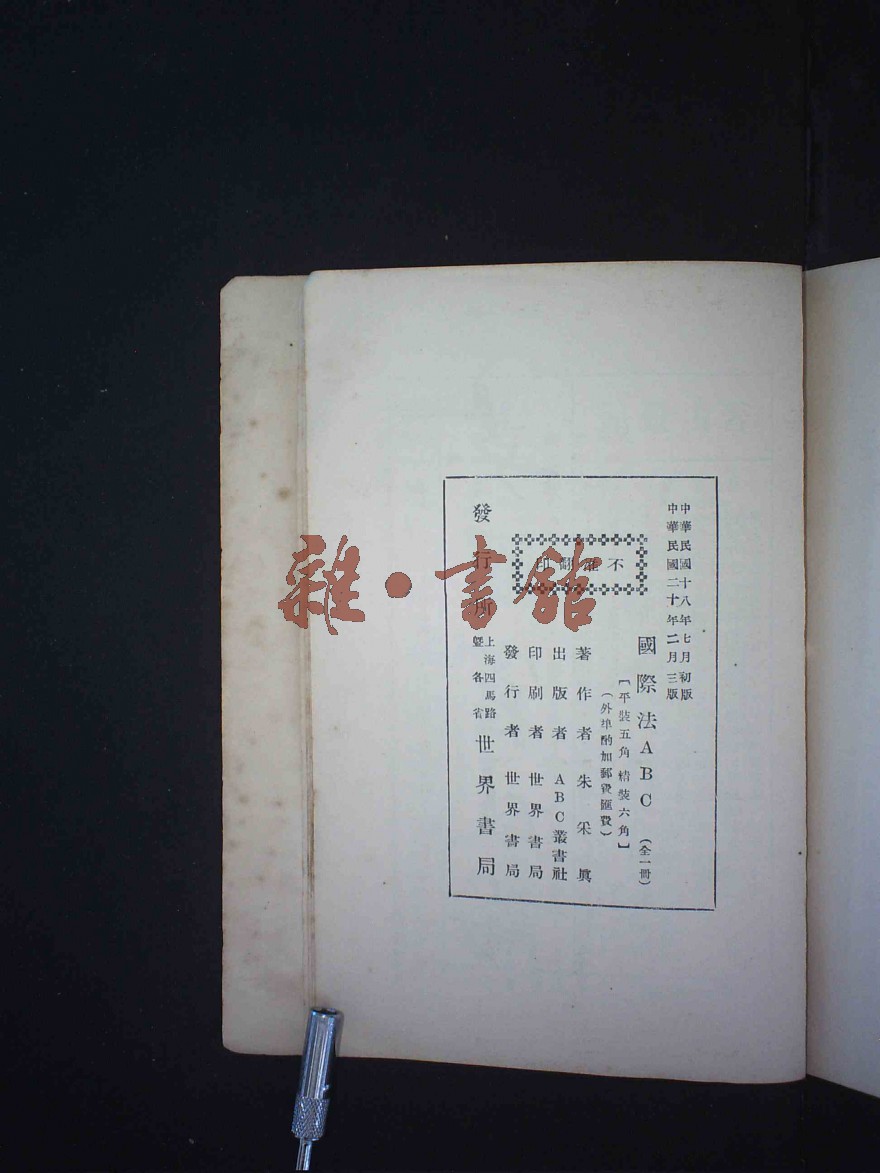 中華民國十八年七月初版
中華民國二十年二月三版
國際法ABC（全一冊）
［平裝五角 精裝六角］
（外埠酌加郵費匯費）
不准翻印
著作者 朱采眞
出版者 ABC叢書社
印刷者 世界書局
發行者 世界書局
發行所 上海四馬路暨各省 世界書局
雜·書館